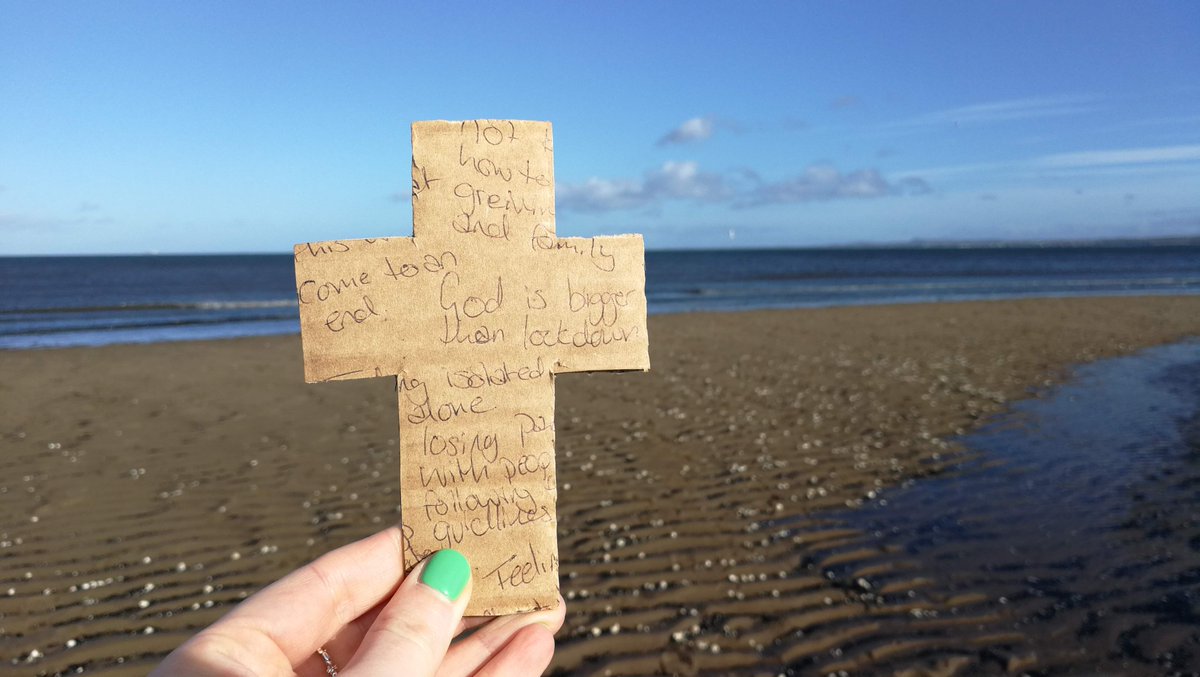 not
how to
greiving
and family
this
come to an
end.
God is bigger
than lockdown
isolated
alone.
losing
with
following
guidlines
Feelin